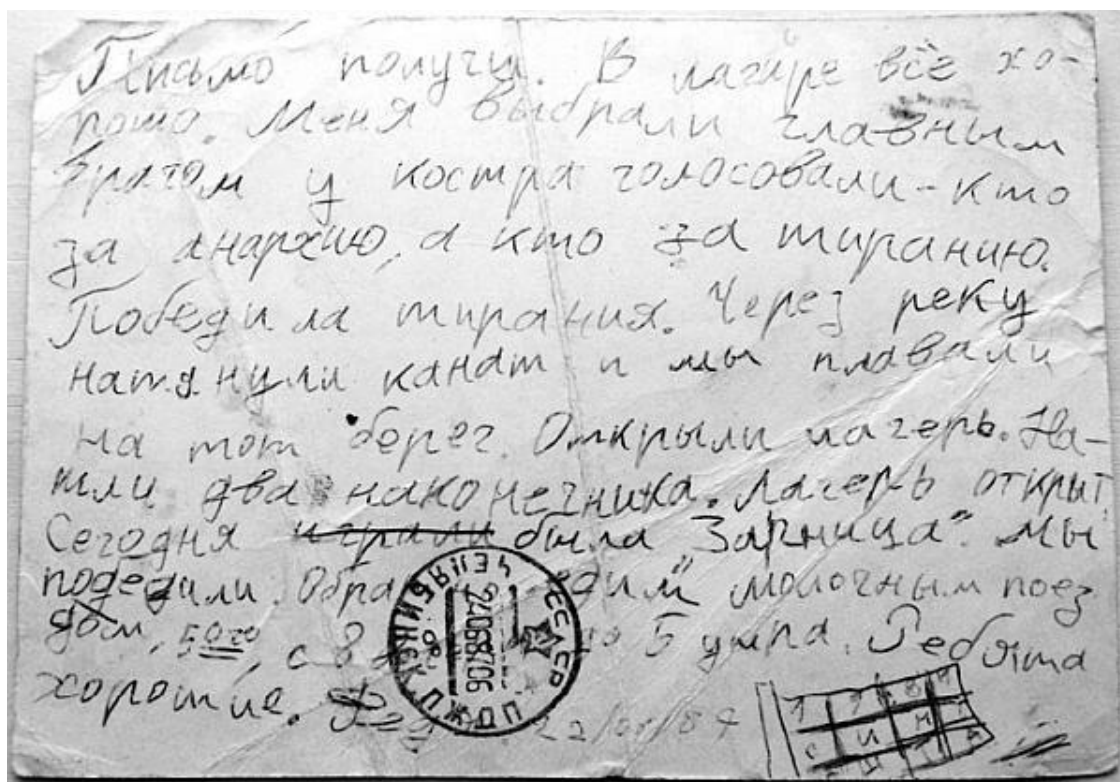 Письмо получил. В лагире всё хо-
рошо. Меня выбрали главным
врагом у костра голосовали - кто
за анархию, а кто за тиранию.
Победила тирания. Через реку
натянули канат и мы плавали
на тот берег. Открыли лагерь. На-
шли два наконечника. Лагерь открыт.
Сегодня играли была "Зарница". Мы
победили. Обра едим молочным поез
дом, 5ого, с 8 до 5 утра. Ребята
хорошие. 22/01/87
СССР
ЧЕЛЯБИНСК ПЖДП